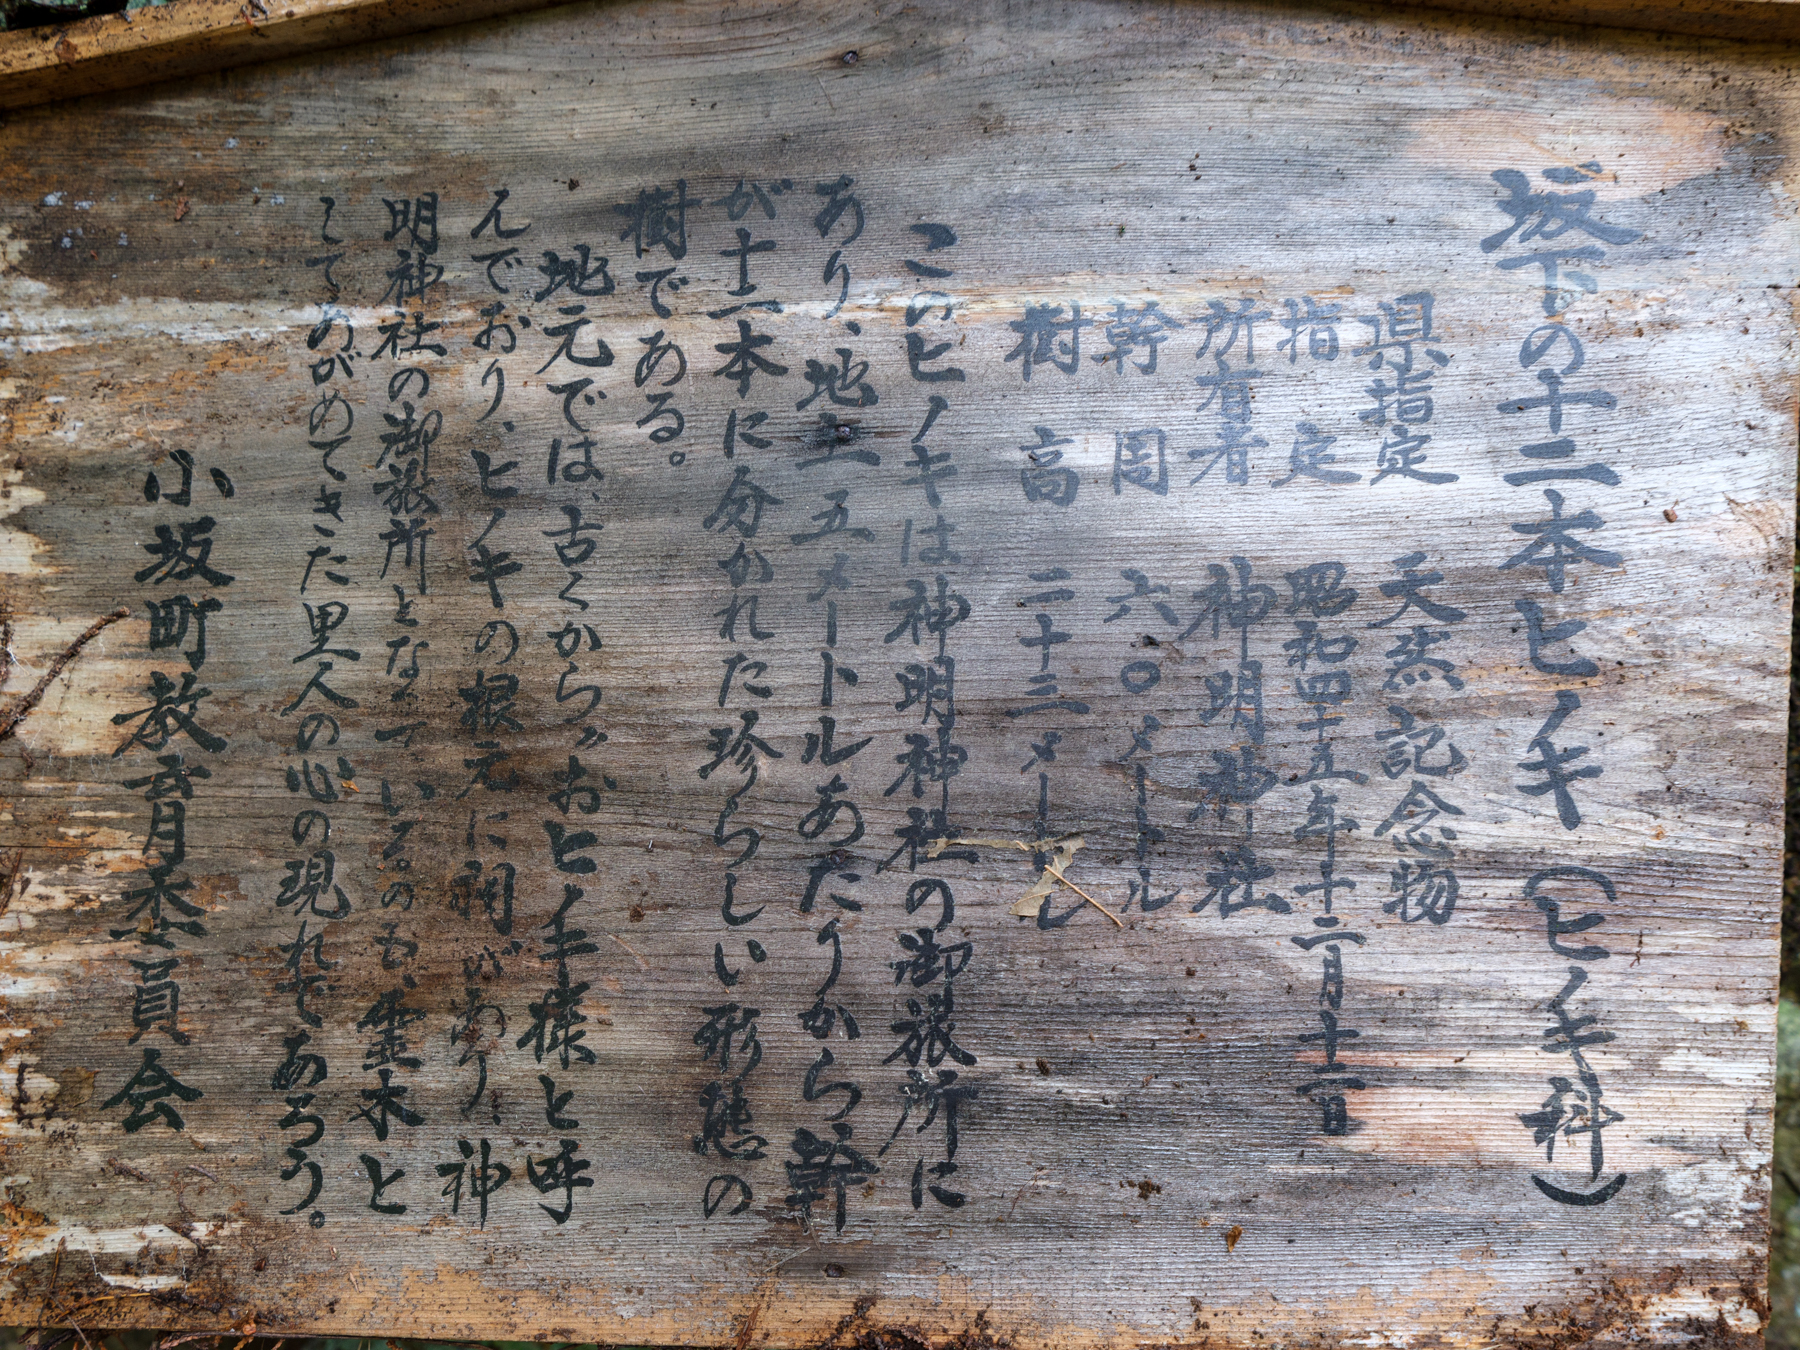 坂下の十二本ヒノキ（ヒノキ科）
県指定 天然記念物
指定 昭和四十五年十二月十二日
所有者 神明神社
幹周 六〇メートル
樹高 二十三メートル
このヒノキは神明神社の御旅所に
あり、地上五メートルあたりから幹
が十二本に分かれた珍らしい形態の
樹である。
地元では、古くから〃おヒノキ様と呼
んでおり、ヒノキの根元に祠があり、神
明神社の御旅所となっているのも、霊木と
してあがめてきた里人の心の現れであろう。
小坂町教育委員会